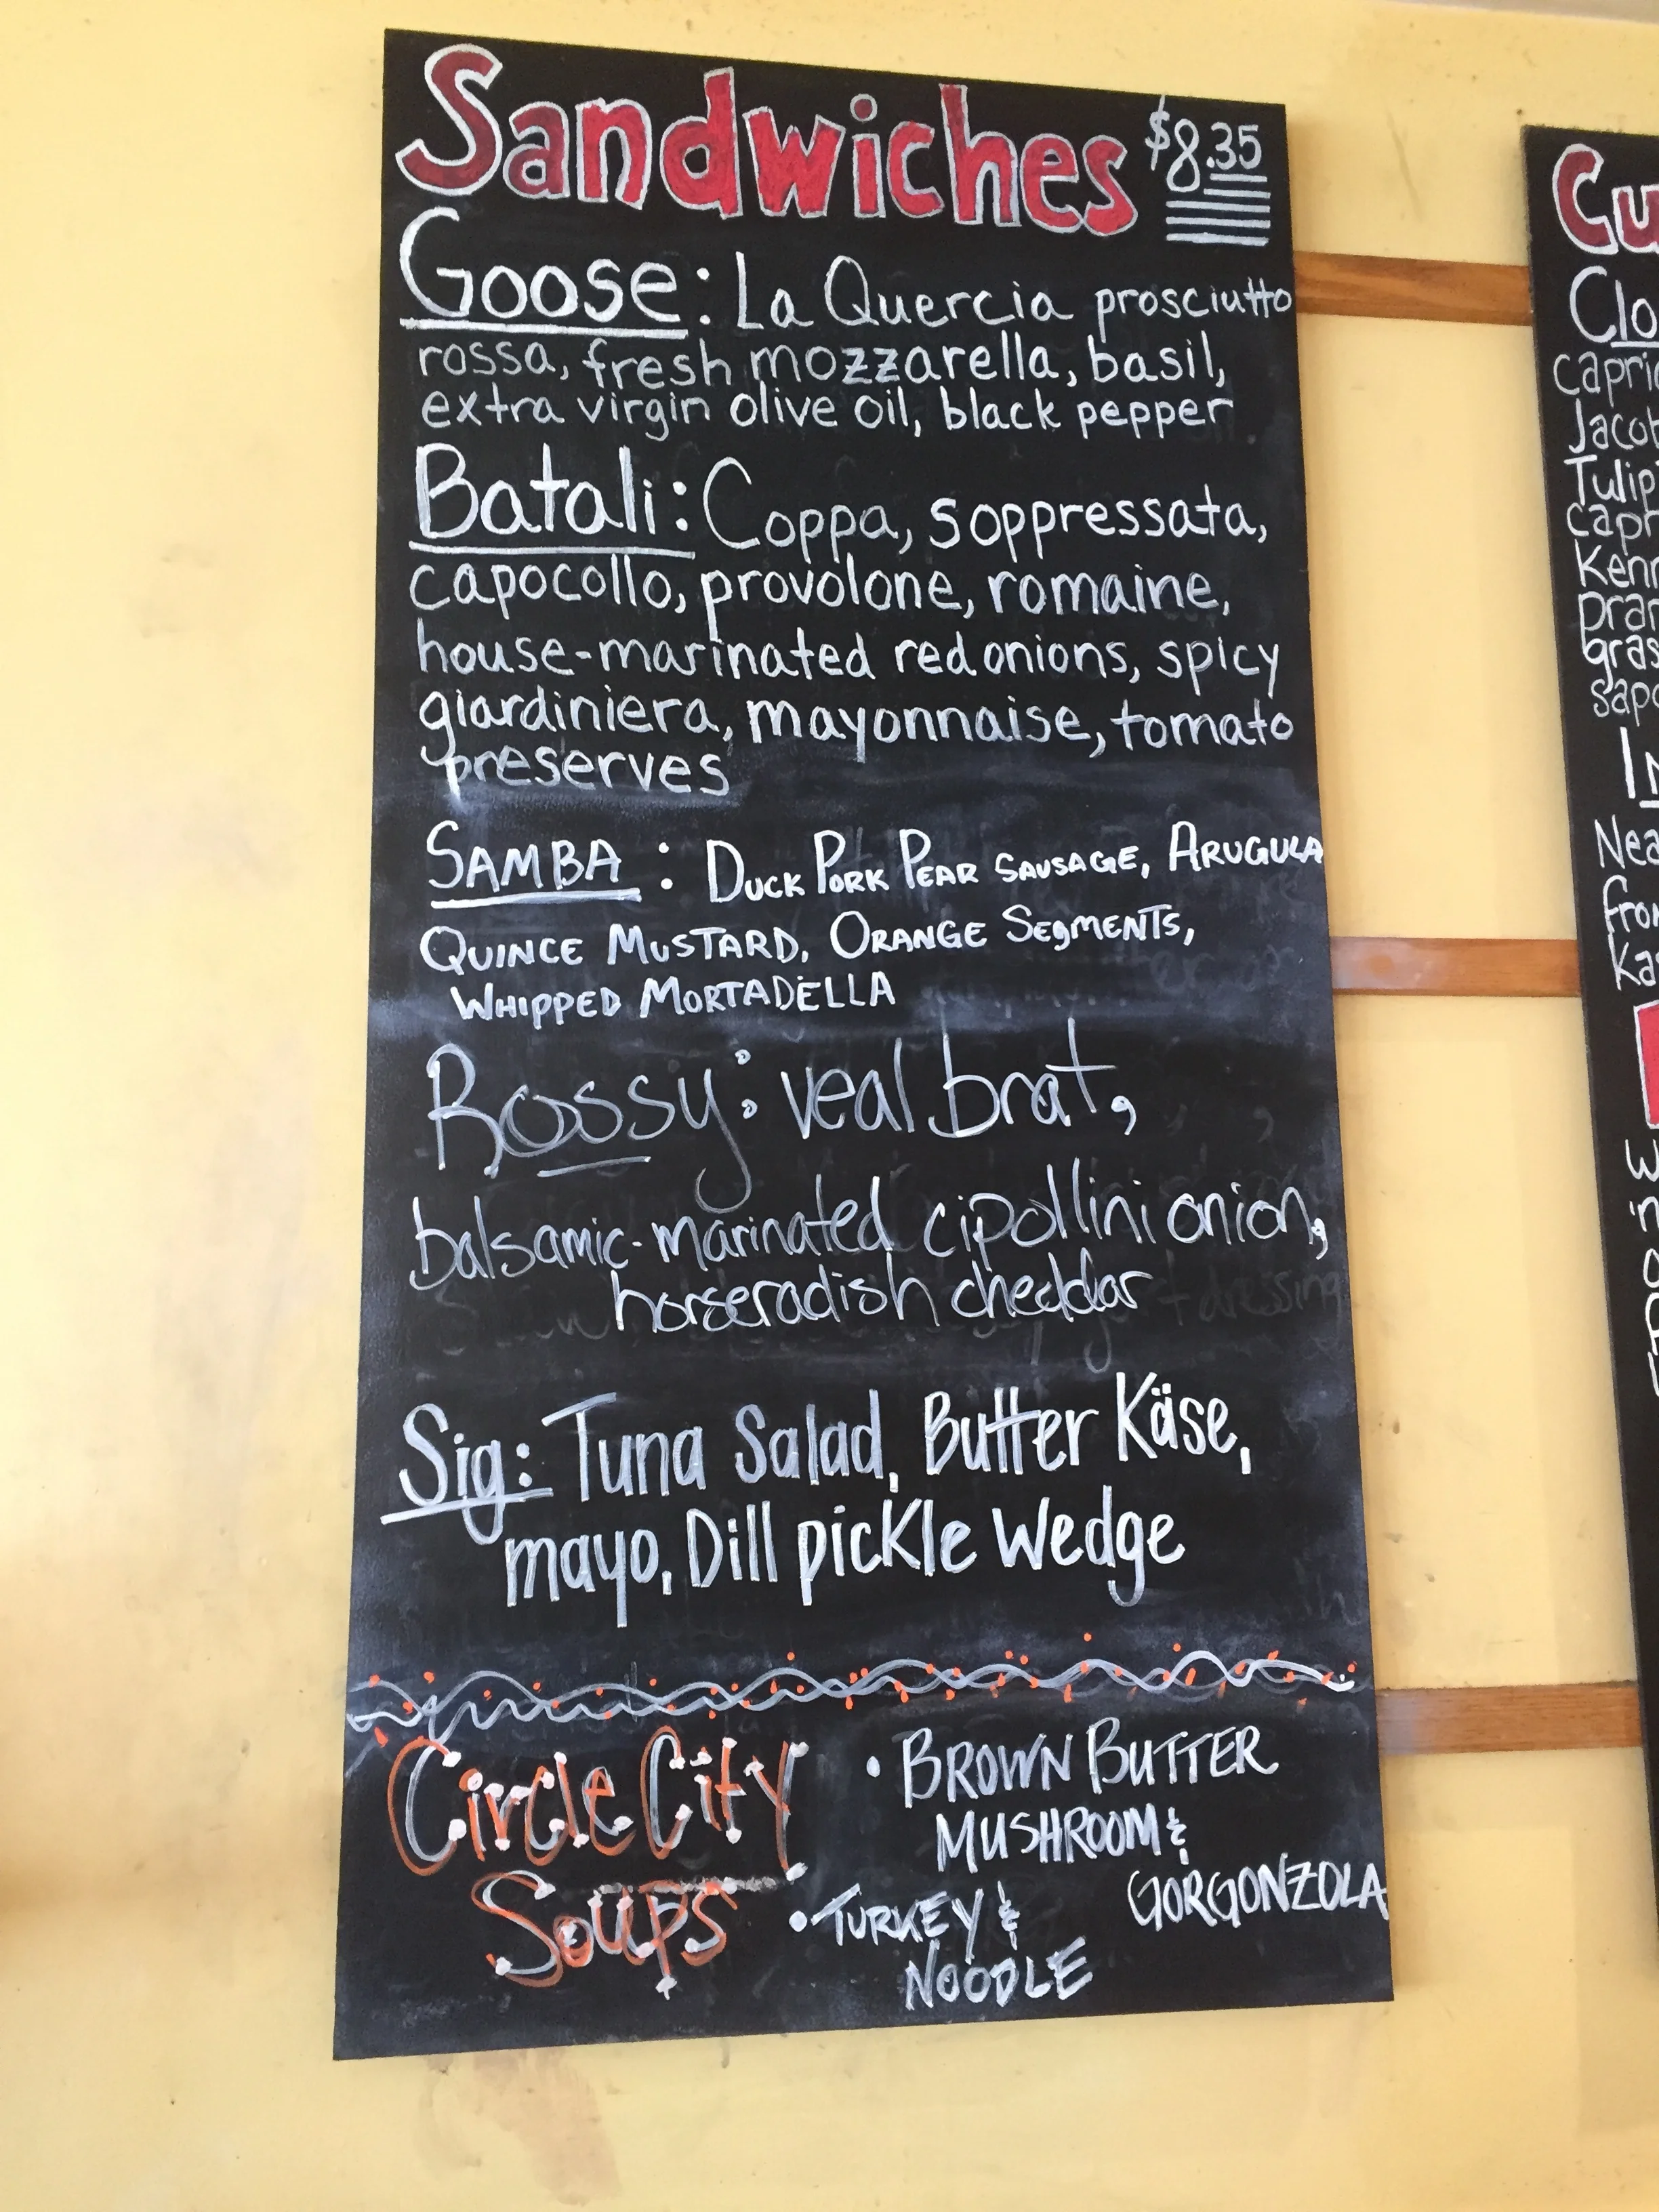 Sandwiches $8.35
Goose: La Quercia prosciutto
rossa, fresh mozzarella, basil,
extra virgin olive oil, black pepper
Batali: Coppa, soppressata,
capocollo, provolone, romaine,
house-marinated red onions, spicy
giardiniera, mayonnaise, tomato
preserves
SAMBA: DUCK PORK PEAR SAUSAGE, ARUGULA
QUINCE MUSTARD, ORANGE SEgMENTS,
WHIPPED MORTADELLA
Rossy: veal brat,
balsamic-marinated cipollini onion,
horseradish cheddar
Sig: Tuna Salad, Butter Käse,
mayo, Dill pickle Wedge
Circle City
Soups
• BROWN BUTTER
MUSHROOM &
GORGONZOLA
• TURKEY &
NOODLE
Cu
Clo
capric
Jacob
Tulip
capr
Kenn
gras
sapo
In
Nea
from
Kas